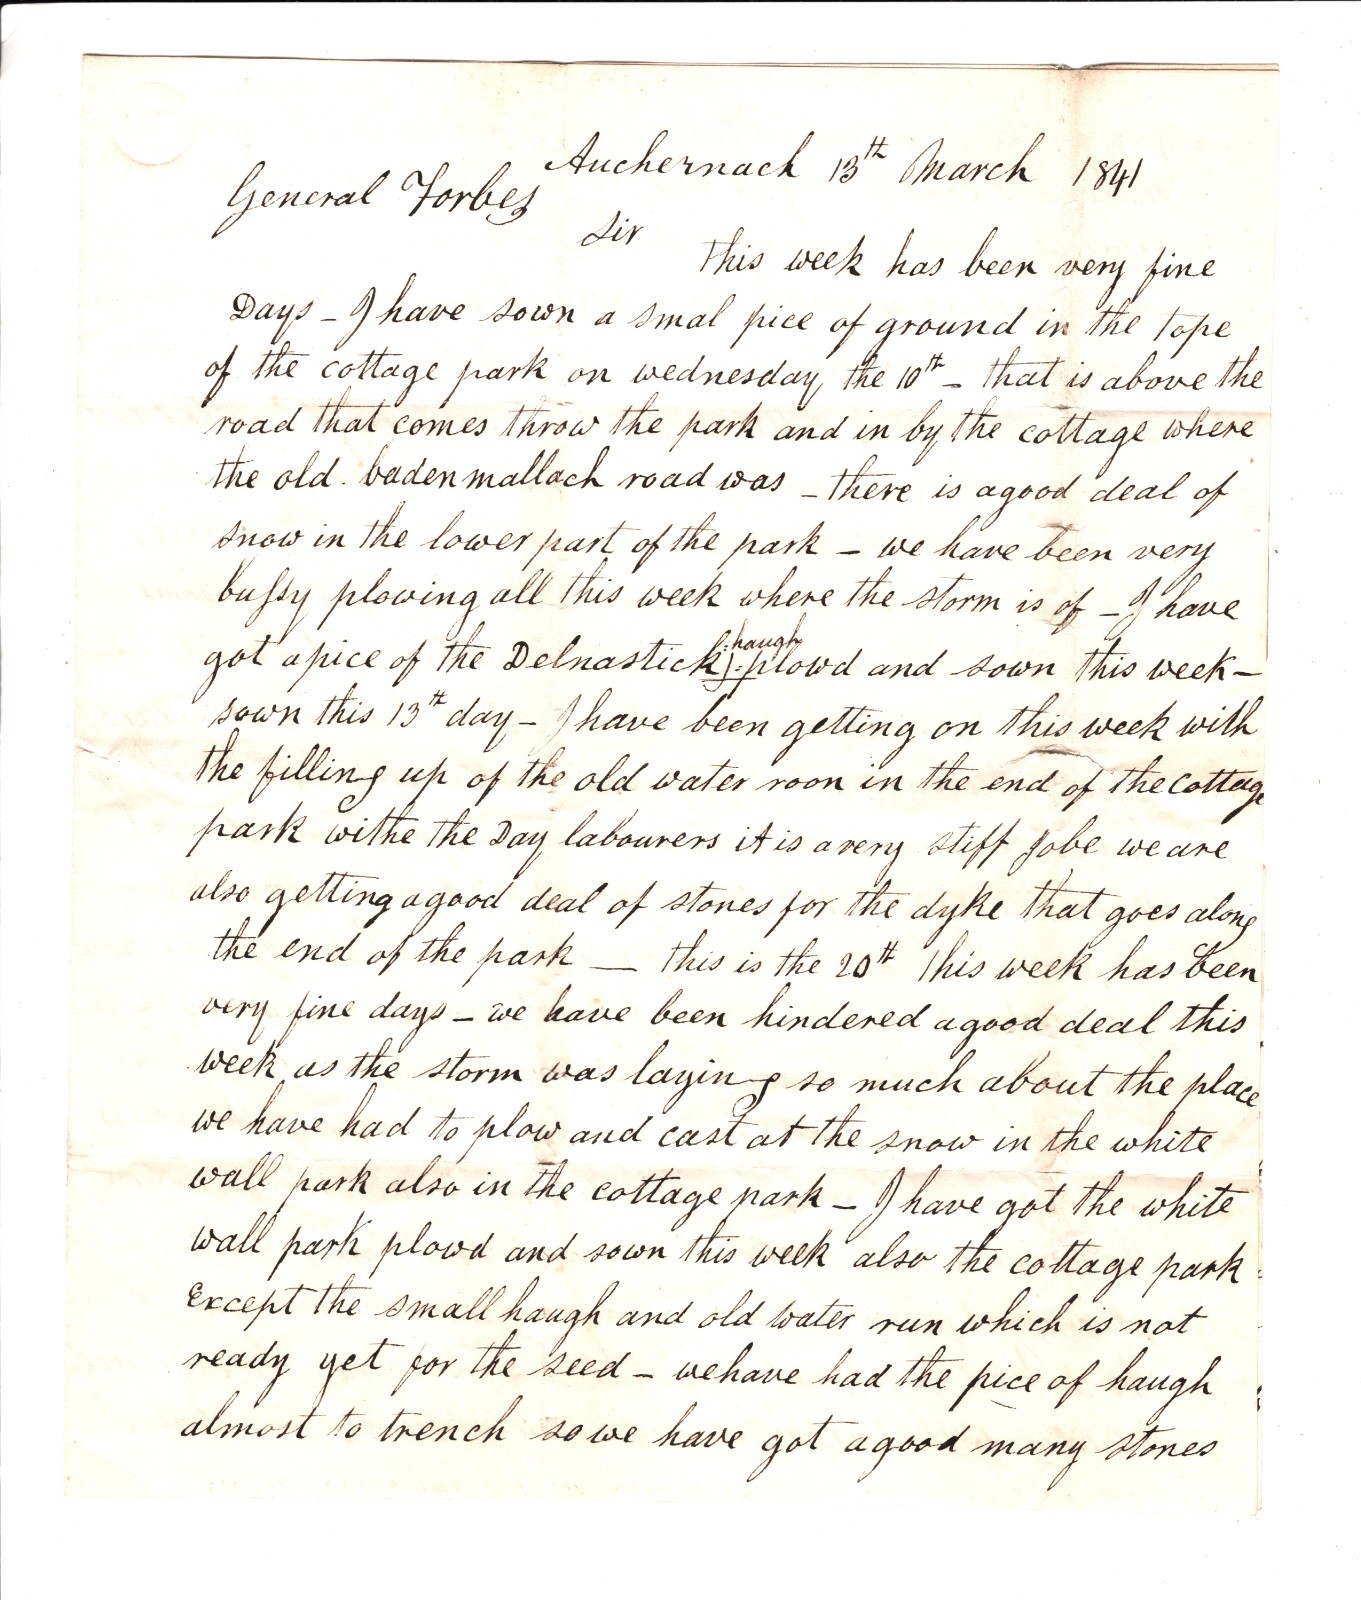 Auchernach 13th March 1841
General Forbes
Sir
This week has been very fine
Days – I have sown a smal pice of ground in the tope
of the cottage park on wednesday the 10th – that is above the
road that comes throw the park and in by the cottage where
the old badenmallach road was – there is a good deal of
snow in the lower part of the park – we have been very
bussy plowing all this week where the storm is of – I have
got a pice of the Delnastick haugh plowd and sown this week –
sown this 13th day – I have been getting on this week with
the filling up of the old water roon in the end of the cottage
park withe the Day labourers it is a very stiff jobe we are
also getting a good deal of stones for the dyke that goes along
the end of the park — this is the 20th This week has been
very fine days – we have been hindered a good deal this
week as the storm was laying so much about the place
we have had to plow and cast at the snow in the white
wall park also in the cottage park – I have got the white
wall park plowd and sown this week also the cottage park
Except the small haugh and old water run which is not
ready yet for the seed – we have had the pice of haugh
almost to trench so we have got a good many stones